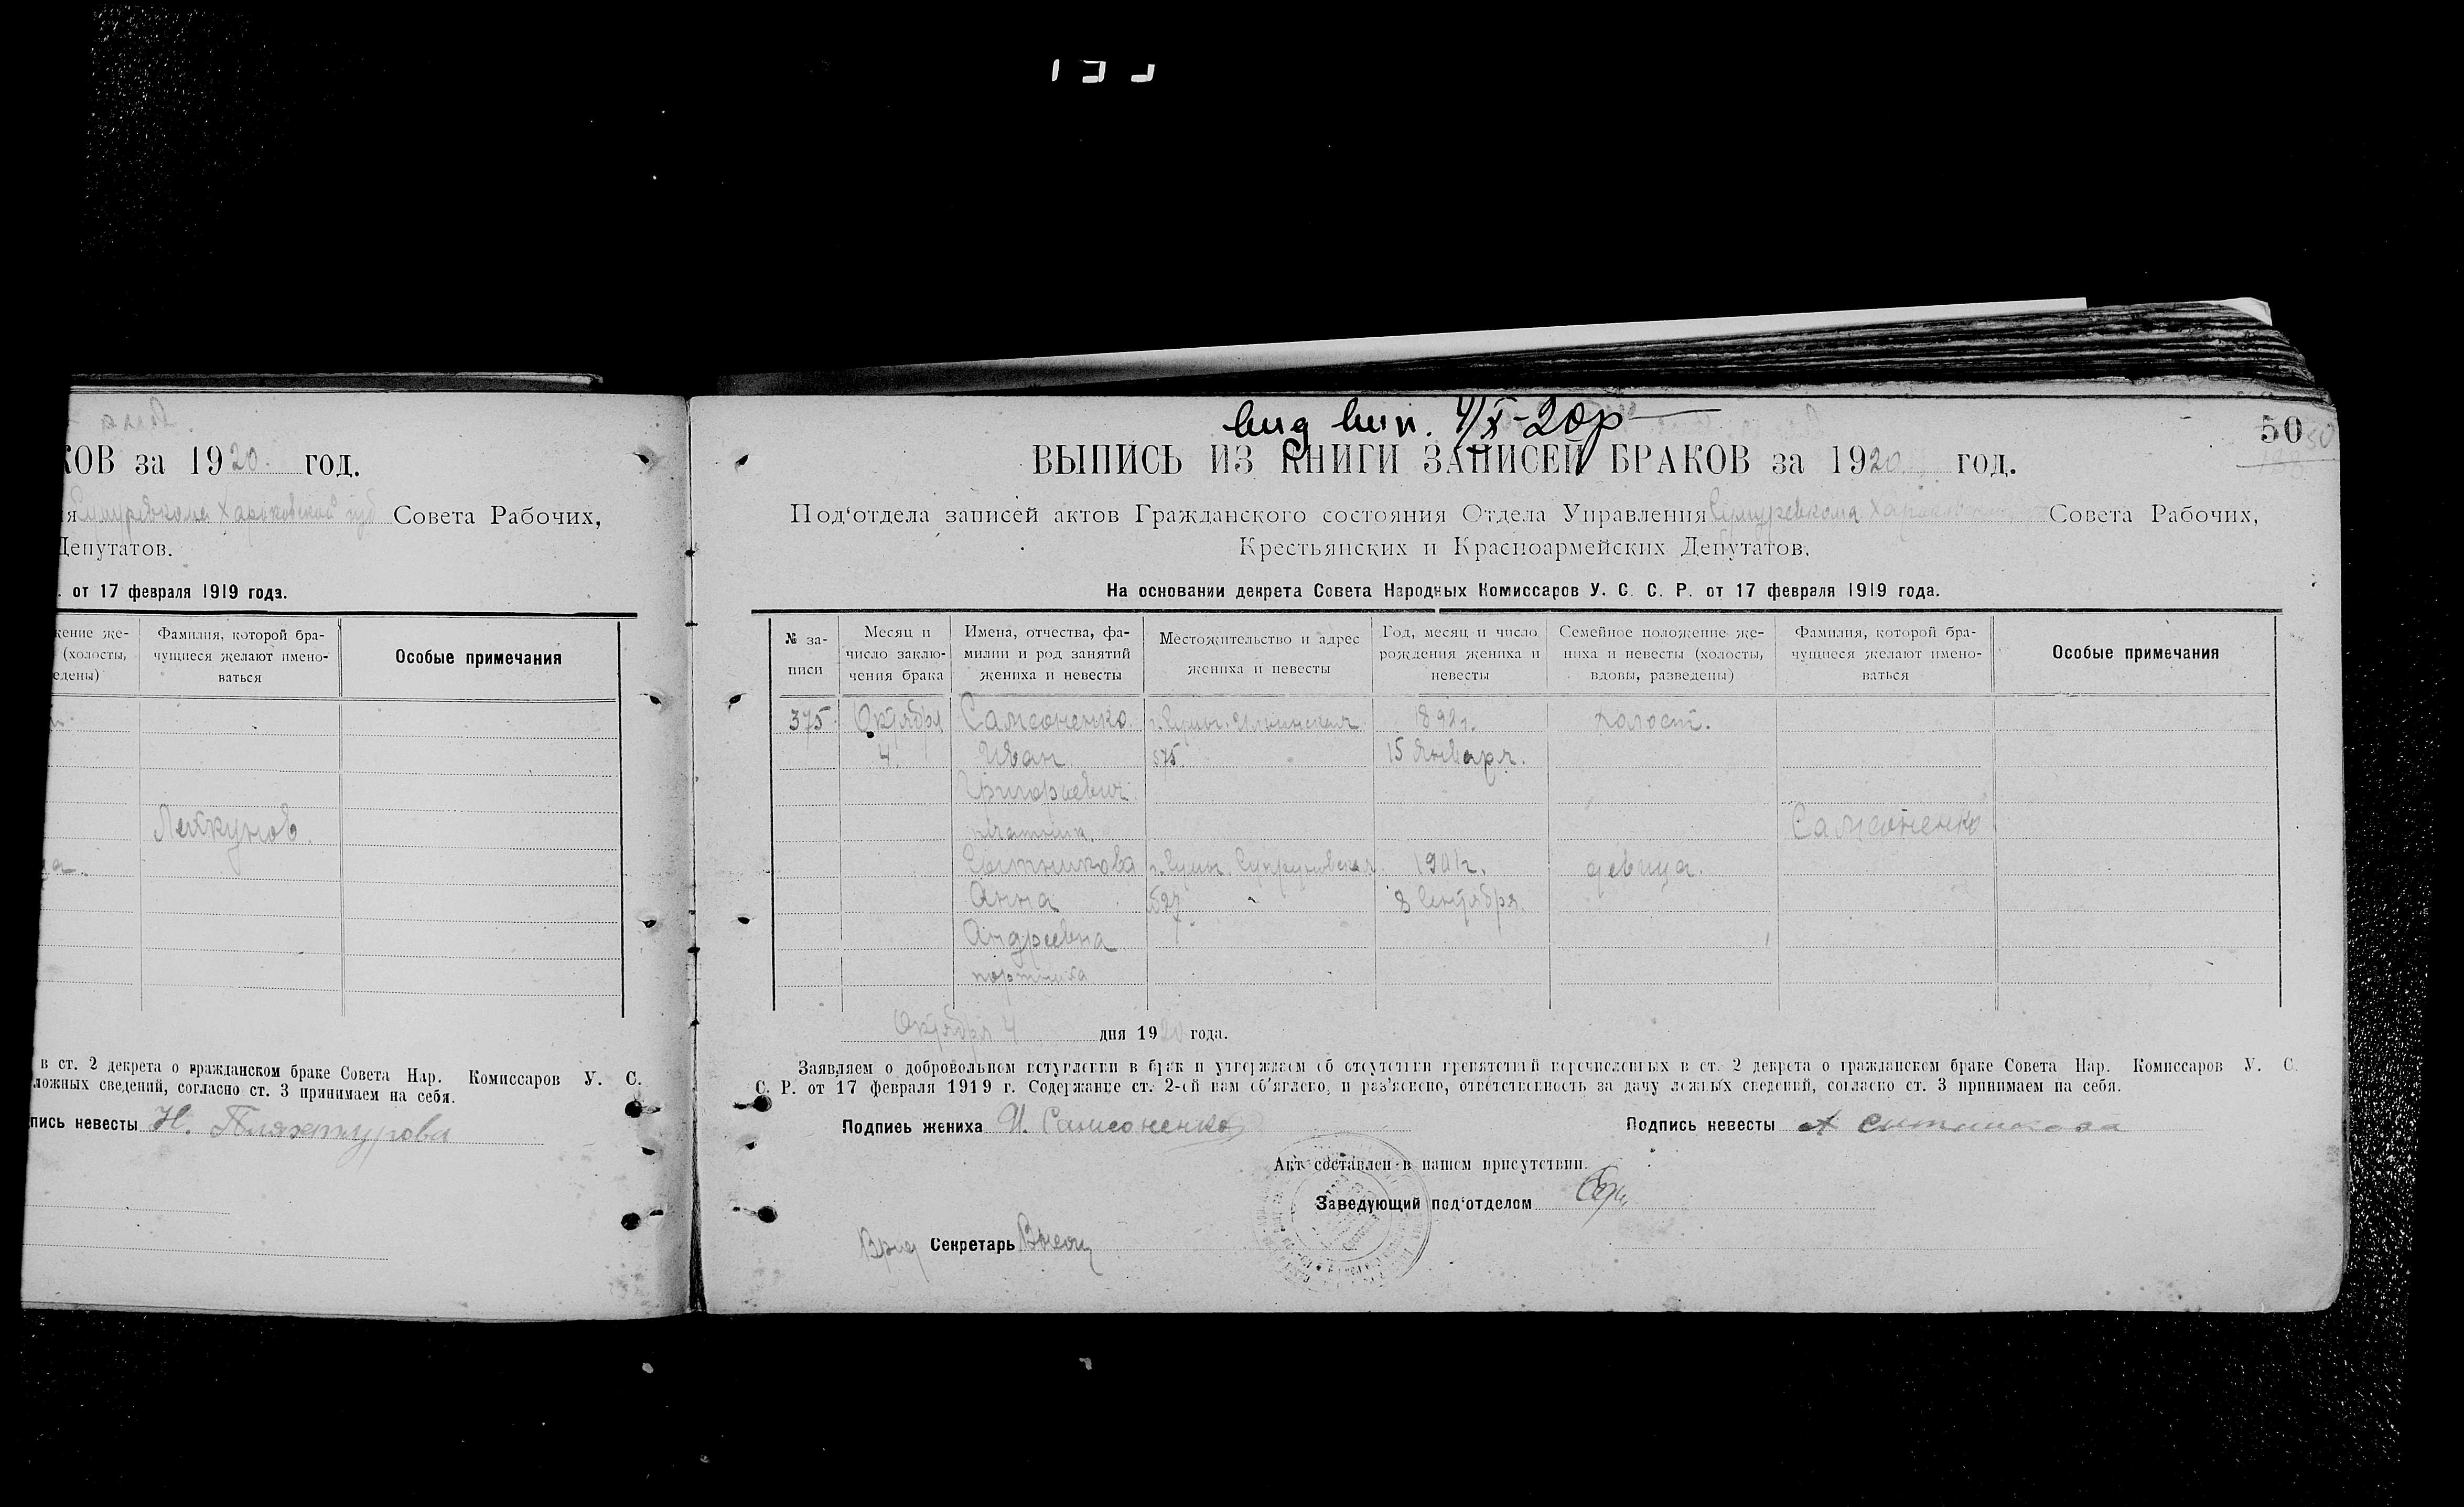 КОВ за 1920 год.
Сумуревкома Харьковской губ Совета Рабочих,
Депутатов.
от 17 февраля 1919 года.
жение же-
(холосты,
едены)
Фамилия, которой бра-
чущиеся желают имено-
ваться
Особые примечания
в ст. 2 декрета о гражданском браке Совета Нар. Комиссаров У. С.
ложных сведений, согласно ст. 3 принимаем на себя.
пись невесты Н.
вид вип. 4/X-20р
50
ВЫПИСЬ ИЗ КНИГИ ЗАПИСЕЙ БРАКОВ за 1920 год.
Под‘отдела записей актов Гражданского состояния Отдела Управления Сумуревкома Харьков Совета Рабочих,
Крестьянских и Красноармейских Депутатов.
На основании декрета Совета Народных Комиссаров У. С. С. Р. от 17 февраля 1919 года.
№ за-
писи
Месяц и
число заклю-
чения брака
Имена, отчества, фа-
милии и род занятий
жениха и невесты
Местожительство и адрес
жениха и невесты
Год, месяц и число
рождения жениха и
невесты
Семейное положение же-
ниха и невесты (холосты,
вдовы, разведены)
Фамилия, которой бра-
чущиеся желают имено-
ваться
Особые примечания
375 Октября Самсоненко г. Сумы. Ильинская 1892г. холост.
4. Иван 575. 15 января.
Григорьевич
Самсоненко
Сытникова г. Сумы. Супруновская 1901г. девица.
Анна 527 8 Сентября.
Андреевна
портниха
Октября 4 дня 1920 года.
Заявляем о добровольном вступлении в брак и утверждаем об отсутствии препятствий перечисленных в ст. 2 декрета о гражданском браке Совета Нар. Комиссаров У. С.
С. Р. от 17 февраля 1919 г. Содержание ст. 2-ой нам об‘явлено, и раз‘яснено, ответственность за дачу ложных сведений, согласно ст. 3 принимаем на себя.
Подпись жениха И. Самсоненко Подпись невесты А Сытникова
Акт составлен в нашем присутствии.
Заведующий под‘отделом
Врид Секретарь